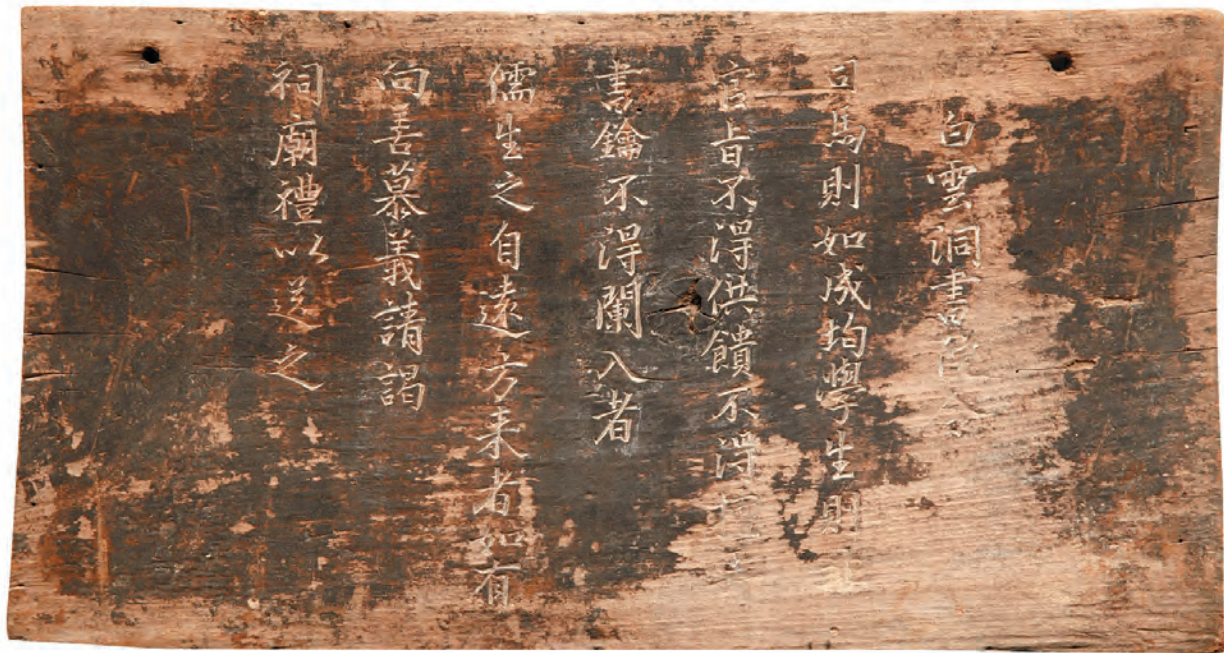 白雲洞書院
司馬則如成均學生則
官旨不得供饋不得
書鑰不得闌入者
儒生之自遠方来者如有
向善慕義請謁
祠廟禮以送之